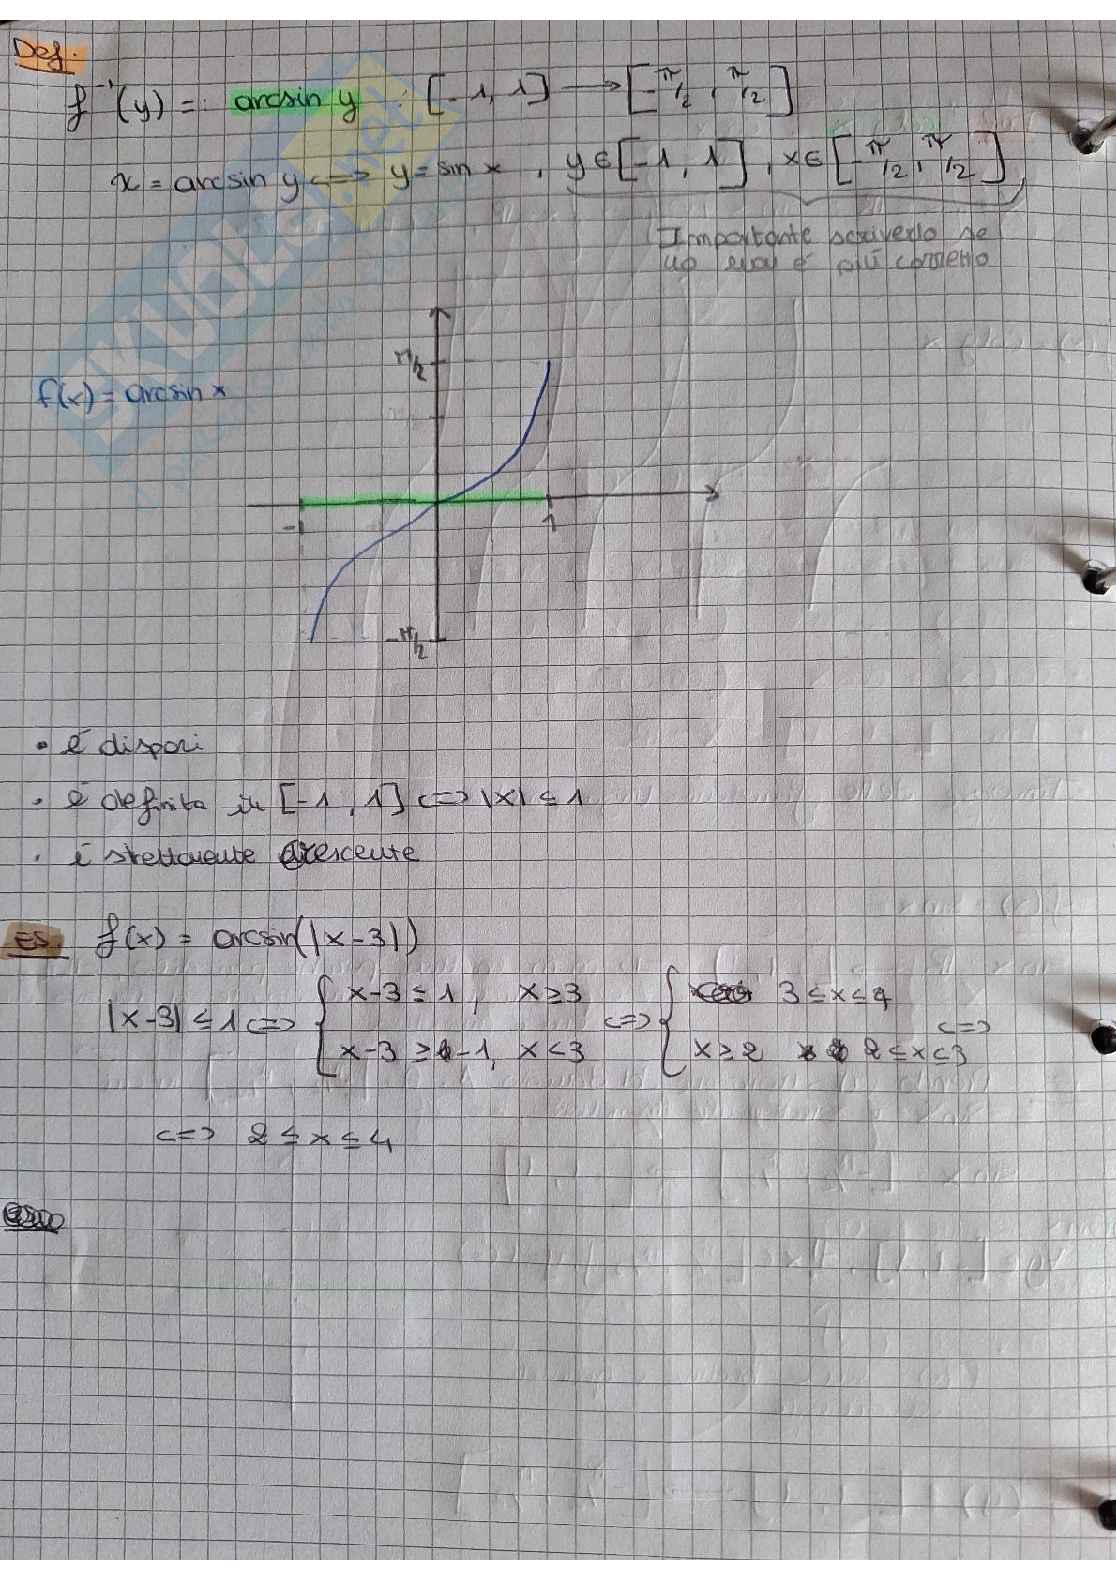 Def.
f⁻¹(y) =: arcsin y : [-1, 1] → [-π/2, π/2]
x = arcsin y <=> y = sin x , y ∈ [-1, 1] , x ∈ [-π/2, π/2]
Importante scriverlo se
no non è più corretto
π/2
f(x) = arcsin x
-1
1
-π/2
• è dispari
• è definita in [-1, 1] <=> |x| ≤ 1
• è strettamente crescente
ES. f(x) = arcsin(|x-3|)
|x-3| ≤ 1 <=> { x-3 ≤ 1, x ≥ 3 <=> { 3 ≤ x ≤ 4
x-3 ≥ -1, x < 3 x ≥ 2 2 ≤ x < 3 <=>
<=> 2 ≤ x ≤ 4
SKUOLA.net